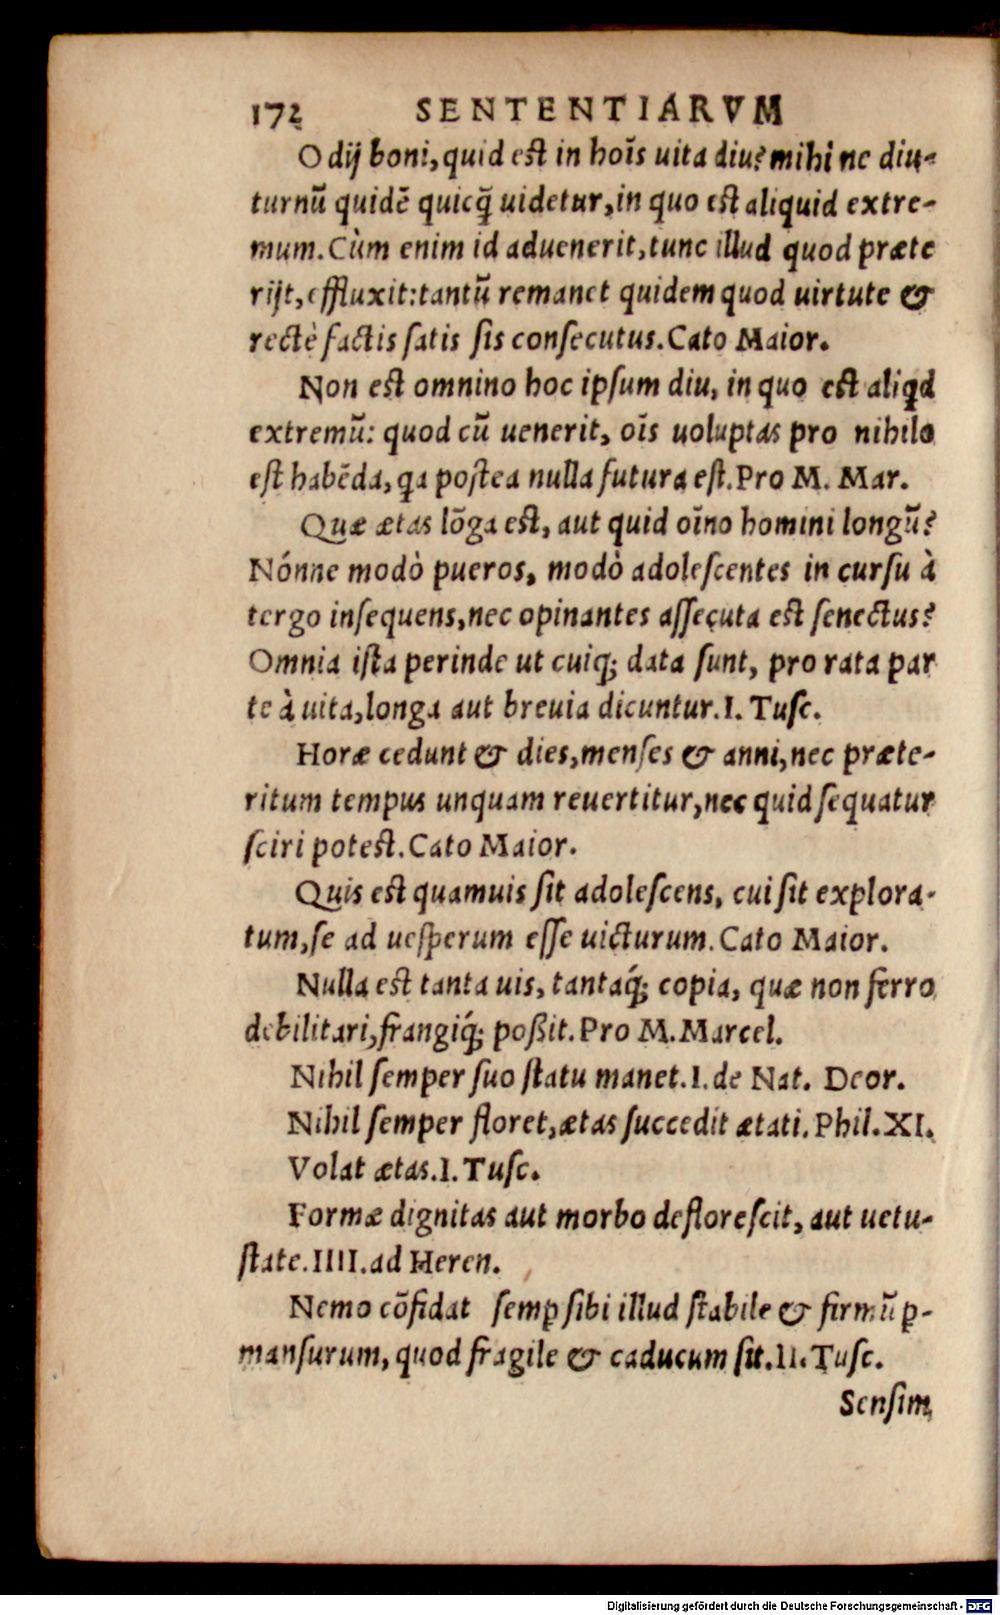 172 SENTENTIARVM
O dij boni, quid est in hoĩs uita diu? mihi ne diu-
turnũ quidẽ quicq̃ uidetur, in quo est aliquid extre-
mum. Cùm enim id aduenerit, tunc illud quod præte
rijt, effluxit: tantũ remanet quidem quod uirtute &
rectè factis satis sis consecutus. Cato Maior.
Non est omnino hoc ipsum diu, in quo est aliqd
extremũ: quod cũ uenerit, oĩs uoluptas pro nihilo
est habẽda, qa postea nulla futura est. Pro M. Mar.
Quæ ætas lõga est, aut quid oĩno homini longũ?
Nónne modò pueros, modò adolescentes in cursu à
tergo insequens, nec opinantes assecuta est senectus?
Omnia ista perinde ut cuiq; data sunt, pro rata par
te à uita, longa aut breuia dicuntur. I. Tusc.
Horæ cedunt & dies, menses & anni, nec præte-
ritum tempus unquam reuertitur, nec quid sequatur
sciri potest. Cato Maior.
Quis est quamuis sit adolescens, cui sit explora-
tum, se ad uesperum esse uicturum. Cato Maior.
Nulla est tanta uis, tantaq́; copia, quæ non ferro
debilitari, frangiq́; poßit. Pro M. Marcel.
Nihil semper suo statu manet. I. de Nat. Deor.
Nihil semper floret, ætas succedit ætati. Phil. XI.
Volat ætas. I. Tusc.
Formæ dignitas aut morbo deflorescit, aut uetu-
state. IIII. ad Heren.
Nemo cõfidat semꝑ sibi illud stabile & firmũ ꝑ-
mansurum, quod fragile & caducum sit. II. Tusc.
Sensim
Digitalisierung gefördert durch die Deutsche Forschungsgemeinschaft - DFG